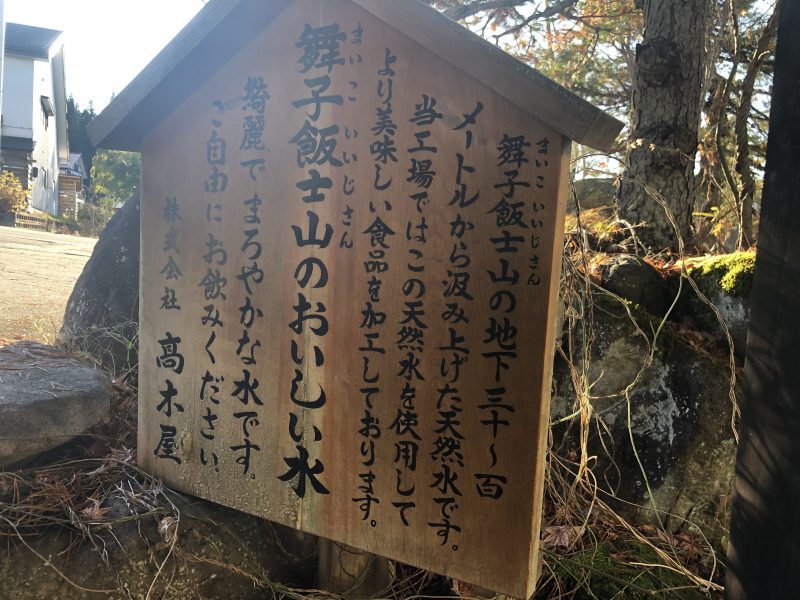 まいこいいじさん
舞子飯士山の地下三十～百
メートルから汲み上げた天然水です。
当工場ではこの天然水を使用して
より美味しい食品を加工しております。
まいこいいじさん
舞子飯士山のおいしい水
綺麗でまろやかな水です。
ご自由にお飲みください。
株式会社 髙木屋